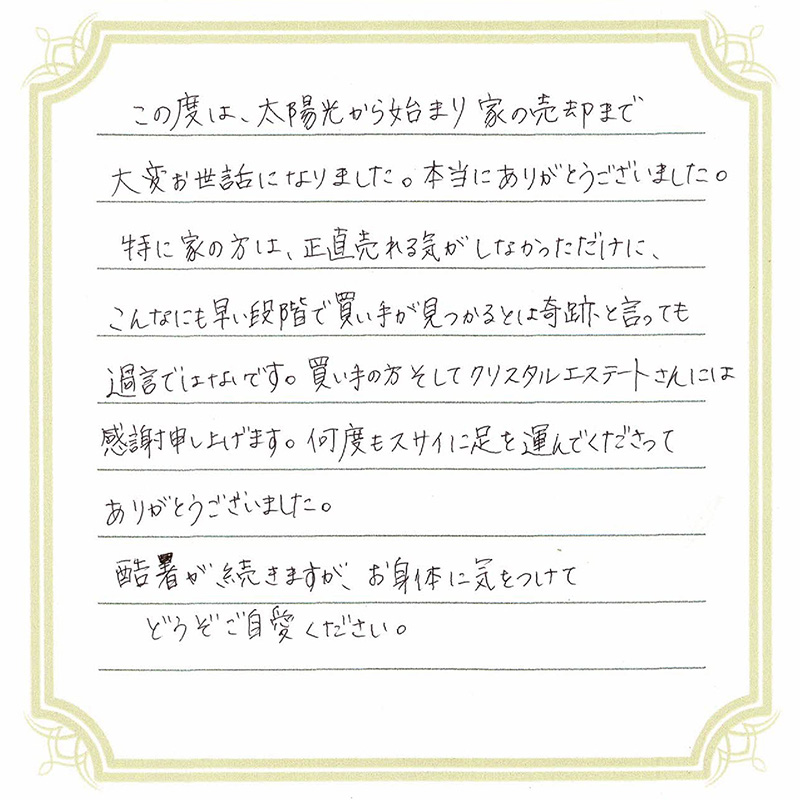 この度は、太陽光から始まり家の売却まで
大変お世話になりました。本当にありがとうございました。
特に家の方は、正直売れる気がしなかっただけに、
こんなにも早い段階で買い手が見つかるとは奇跡と言っても
過言ではないです。買い手の方そしてクリスタルエステートさんには
感謝申し上げます。何度もスサイに足を運んでくださって
ありがとうございました。
酷暑が続きますが、お身体に気をつけて
どうぞご自愛ください。